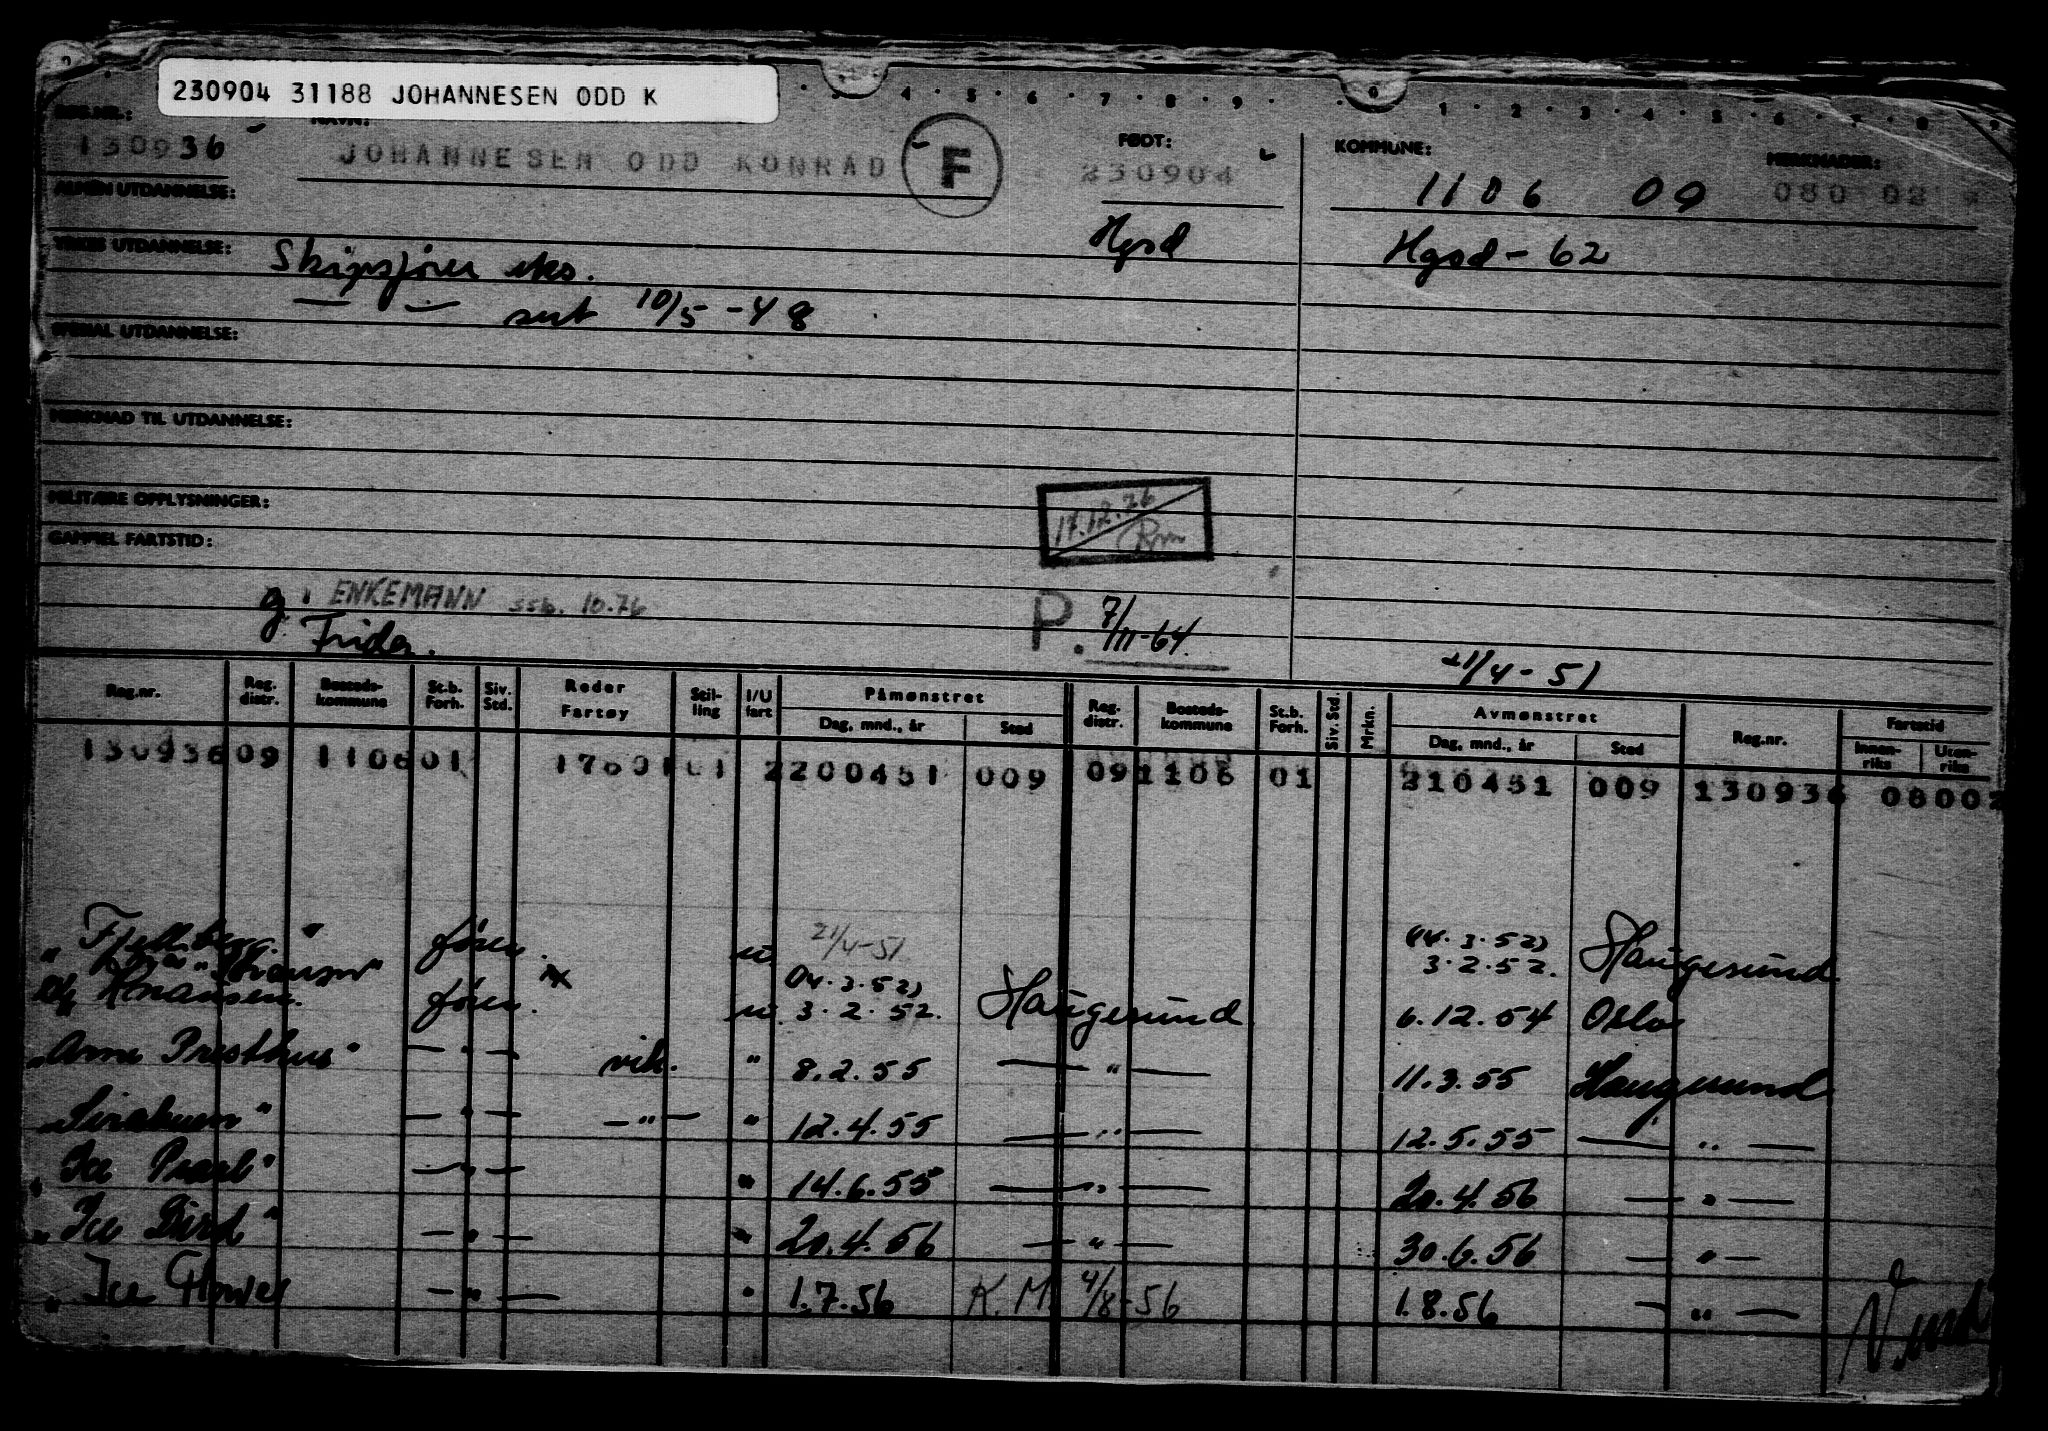 230904 31188 JOHANNESEN ODD K
3 · 4 · 5 · 6 · 7 · 8 · 9 · 0 1 · 2 · 3 · 4 · 5 · 6 · 7 · 8 9
NAVN: FØDT: KOMMUNE: MERKNADER:
130936 JOHANNESEN ODD KONRAD F 230904 1106 09 080 02
ALMEN UTDANNELSE:
YRKES UTDANNELSE: Skipsfører eks. Hgsd Hgsd - 62
— " — sert 10/5 - 48
SPESIAL UTDANNELSE:
MERKNAD TIL UTDANNELSE:
MILITÆRE OPPLYSNINGER: 17.12.76
GAMMEL FARTSTID:
g: ENKEMANN ssb. 10.76 P. 7/III-64
g. Frida. 21/4 - 51
Reg.nr. Reg. distr. Bosteds- kommune St.b. Forh. Siv. Std. Reder Fartøy Stil- ling I/U fart Påmønstret Dag, mnd., år Sted Reg. distr. Bosteds- kommune St.b. Forh. Siv. Std. Mrkn. Avmønstret Dag, mnd., år Sted Reg.nr. Fartstid Innen- riks Uten- riks
130936 09 1106 01 2 200451 009 09 1106 01 210451 009 130936
" Fjellberg. " fører. u. 21/4-51 (14.3.52) 3.2.52. Haugesund
fører. u. (14.3.52) 3.2.52. Haugesund 6.12.54 Oslo
" Arne Presthus " — " — vik. " 8.2.55 — " — 11.3.55 Haugesund
" — " — — " — " 12.4.55 — " — 12.5.55 — " —
" Ice Pearl " — " — " 14.6.55 — " — 20.4.56 — " —
" Ice Bird " — " — " 20.4.56 — " — 30.6.56 — " —
" Ice Flower — " — " 1.7.56 K.M. 4/8-56 1.8.56 — " —